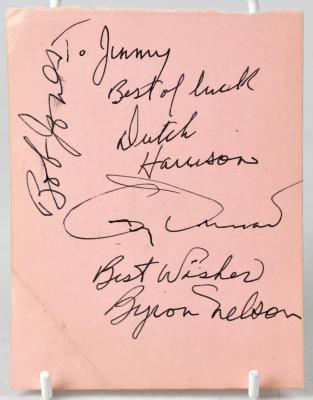 To Jimmy
Best of luck
Dutch
Harrison
Best Wishes
Byron Nelson
Bob Jones